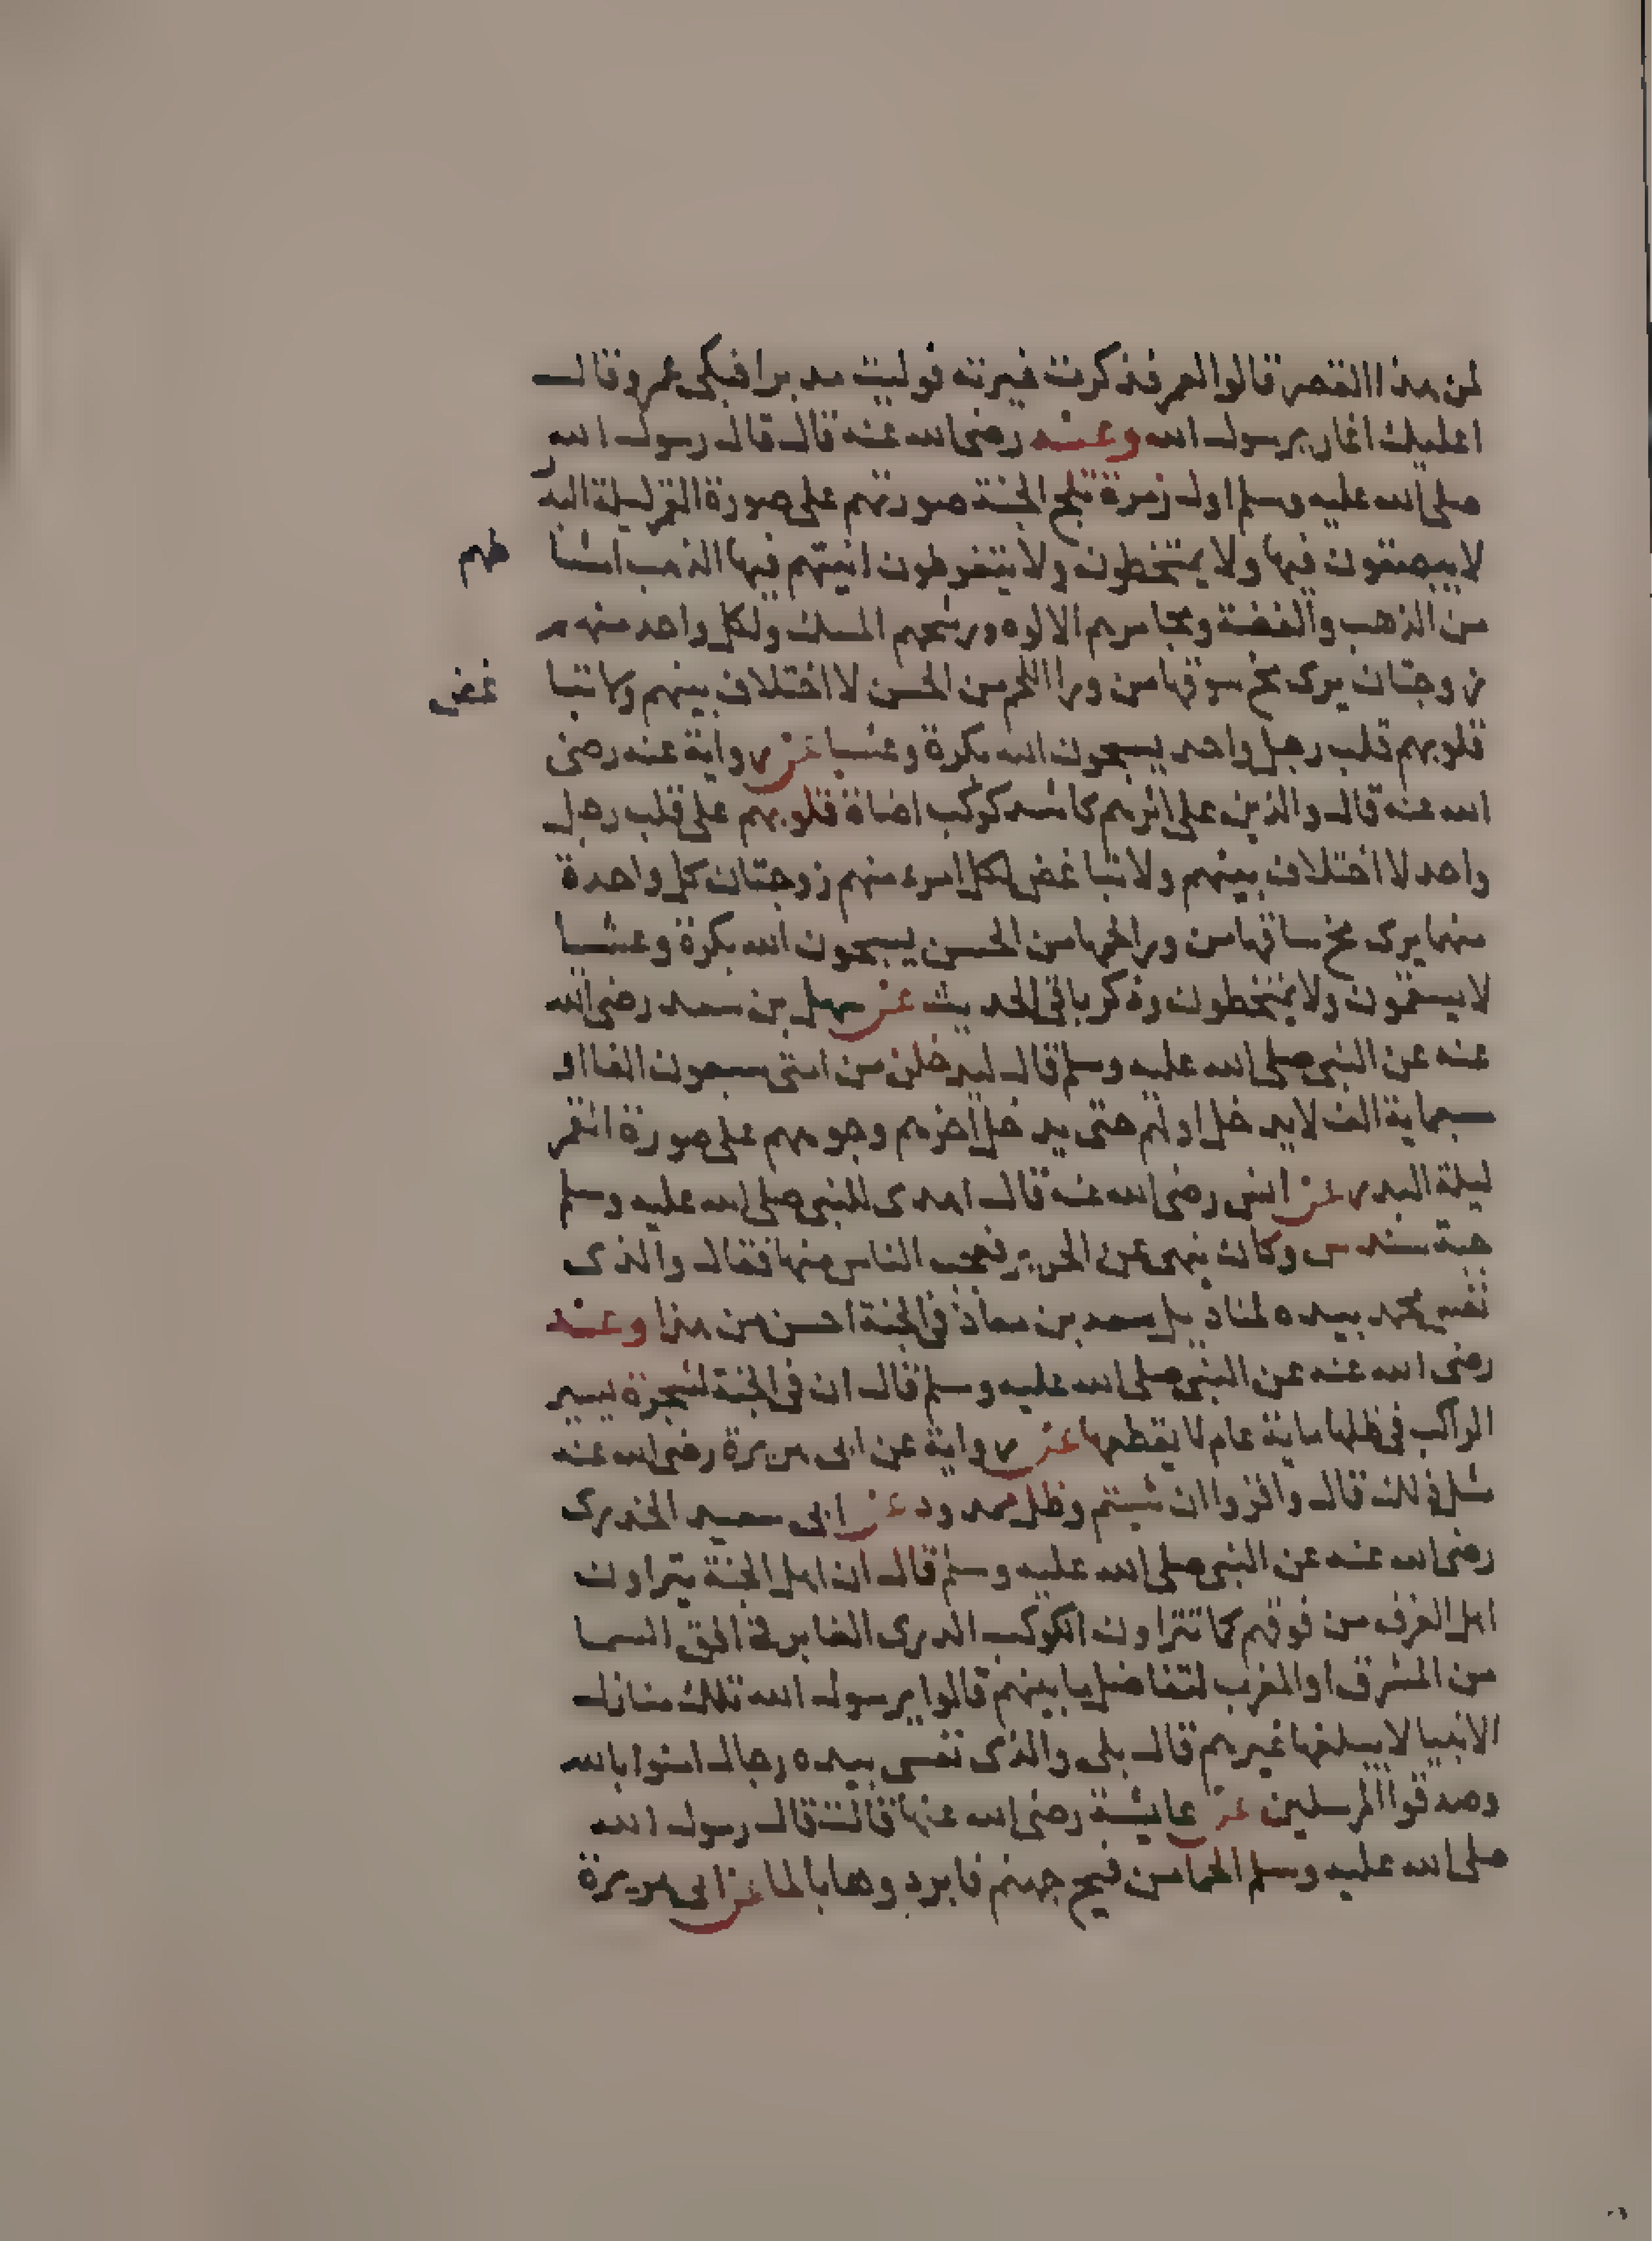 لمن هذا القصر قالوا لعمر فذكرت غيرته فوليت مدبرا فبكى عمر وقال
اعليك اغار يرسول الله وعنه رضى الله عنه قال قال رسول الله
صلى الله عليه وسلم اول زمرة تلج الجنة صورتهم على صورة القمر ليلة البدر
لا يبصقون فيها ولا يمتخطون ولا يتغوطون انيتهم فيها الذهب امشا
طهم
من الذهب والفضة ومجامرهم الالوه ورشحهم المسك ولكل واحد منهم
زوجتان يرى مخ سوقها من ورا اللحم من الحسن لا اختلاف بينهم ولا تبا
غض
قلوبهم قلب رجل واحد يسبحون الله بكرة وعشيا عن رواية عنه رضى
الله عنه قال والذين على اثرهم كاشد كوكب اضاة قلوبهم على قلب رجل
واحد لا اختلاف بينهم ولا تباغض لكل امرء منهم زوجتان كل واحدة
منهما يرى مخ ساقها من ورا لحمها من الحسن يسبحون الله بكرة وعشيا
لا يسقمون ولا يمتخطون وذكر باقى الحديث عن سهل بن سعد رضى الله
عنه عن النبى صلى الله عليه وسلم قال ليدخلن من امتى سبعون الفا او
سبعماية الف لا يدخل اولهم حتى يدخل اخرهم وجوههم على صورة القمر
ليلة البدر عن انس رضى الله عنه قال اهدى للنبى صلى الله عليه وسلم
جبة سندس وكان ينهى عن الحرير فعجب الناس منها فقال والذى
نفس محمد بيده لمناديل سعد بن معاذ فى الجنة احسن من هذا وعنه
رضى الله عنه عن النبى صلى الله عليه وسلم قال ان فى الجنة لشجرة يسير
الراكب فى ظلها ماية عام لا يقطعها عن رواية عن ابى هريرة رضى الله عنه
مثل ذلك قال واقروا ان شيتم وظل ممدود عن ابى سعيد الخدرى
رضى الله عنه عن النبى صلى الله عليه وسلم قال ان اهل الجنة يتراون
اهل الغرف من فوقهم كما تتراون الكوكب الدرى الغابر فى افق السما
من المشرق او المغرب لتفاضل ما بينهم قالوا يرسول الله تلك منازل
الانبيا لا يبلغها غيرهم قال بلى والذى نفسى بيده رجال امنوا بالله
وصدقوا المرسلين عن عايشة رضى الله عنها قالت قال رسول الله
صلى الله عليه وسلم الحما من فيح جهنم فابردوها بالما عن ابى هريرة